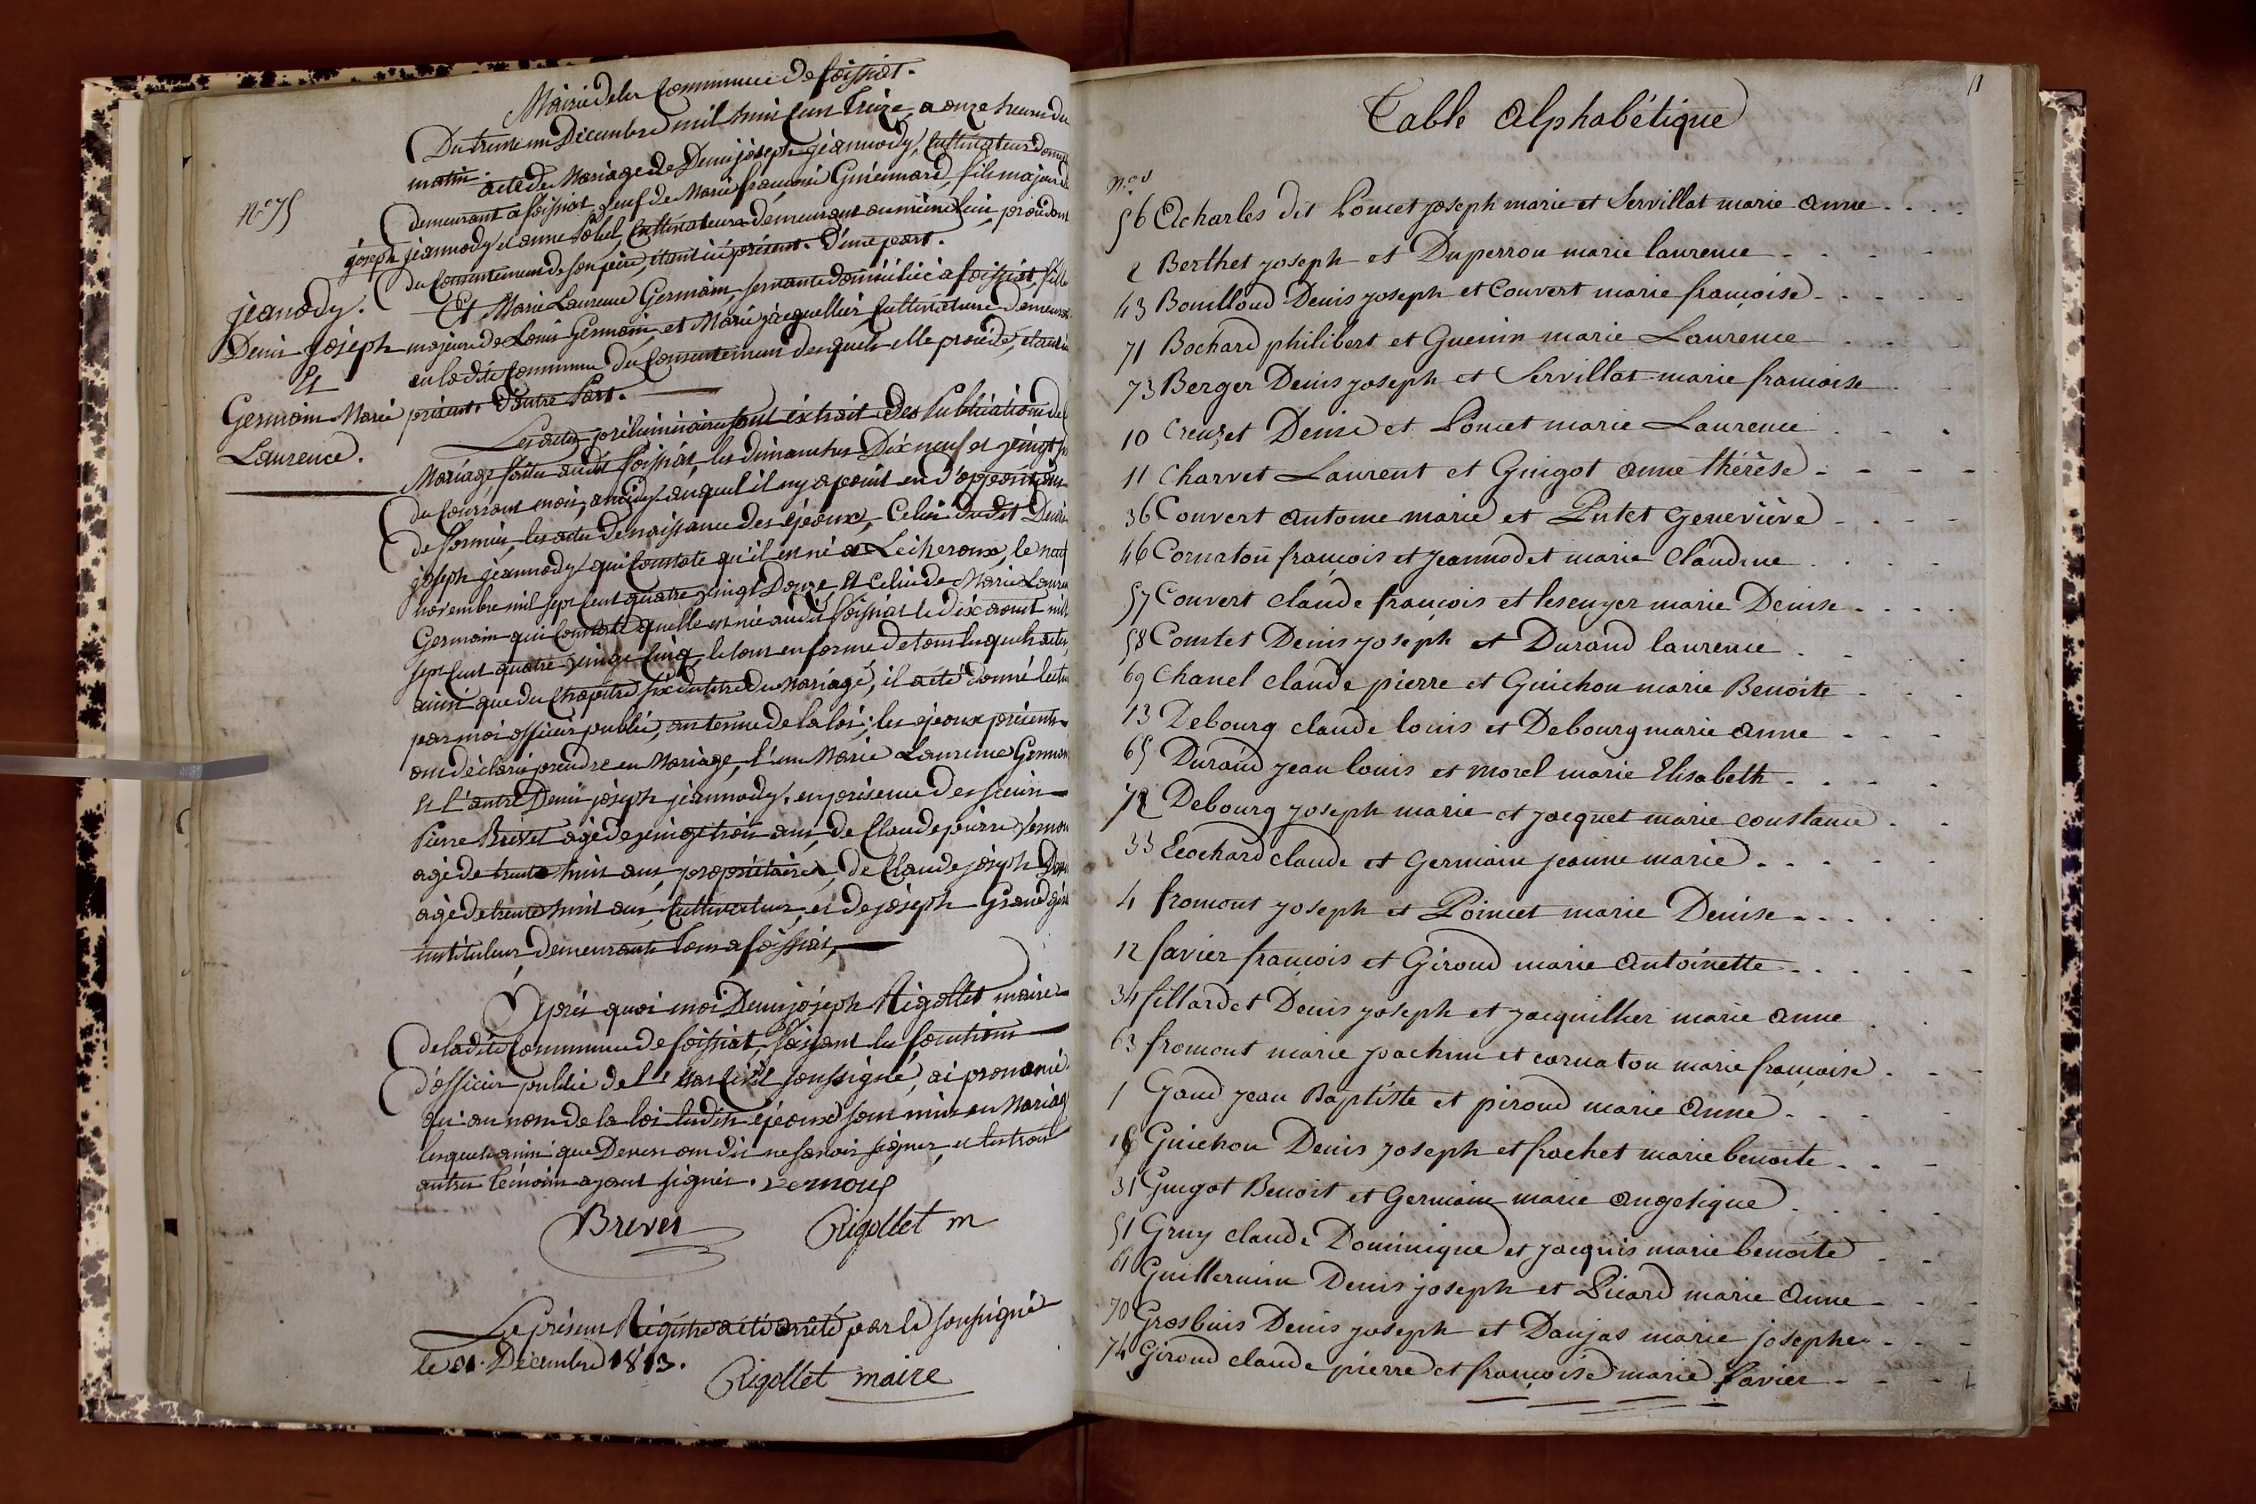 Mairie de la Commune de foissiat.
Du trente un Décembre mil huit Cent Treize, a onze heures du
matin.
acte de Mariage de Denis joseph jéannody, Cultivateur
demeurant a foissiat veuf de Marie françoise Guiennard, fils majeur de
joseph jéannody et anne Sobel, Cultivateurs demeurant au même lieu, procédant
du Consentement de son père, étant ici présent. D'une part.
N.° 75
jéanody.
Denis joseph
Et
Germain Marie
Laurence.
Et Marie Laurence Germain, servante domiciliée a foissiat, fille
majeure de Louis Germain, et Marie jacquellier, Cultivateurs demeurant
en la dite Commune du Consentement desquels elle procède, étant ici
présent. D'autre Part.
Les actes préliminaires sont extrait des Publications de
Mariage faites audit foissiat, les dimanches Dix neuf et vingt six
du Courrant mois, a midy auquel il ny a point eu d'opposition
de formés, les actes de naissance des époux, Celui dudit Denis
joseph jéannody qui Constate qu'il est né a Lescheroux, le neuf
novembre mil sept Cent quatre vingt Douze, Et Celui de Marie Laurence
Germain qui Constate quelle est née audit foissiat le dix aout mil
sept Cent quatre vingt Cinq, le tout en forme de tous lesquels actes
ainsi que du Chapitre six du titre du Mariage, il a été donné lecture
par moi officier public, au terme de la loi; les époux présents
ont déclaré prendre en Mariage, l'un Marie Laurence Germain
Et l'autre Denis joseph jéannody, en présence des sieurs
Pierre Brevet agé de vingt trois ans, de Claude pierre Vernoux
agé de trente huit ans, propriétaires, de Claude joseph
agé de trente huit ans, Cultivateur, et de joseph Grand
instituteur, demeurants Tous a foissiat,
Après quoi moi Denis joseph Rigollet maire
de la dite Commune de foissiat, faisant les fonctions
d'officier public de l'Etat Civil soussigné, ai prononcé
qu'au nom de la loi lesdits époux sont unis en Mariage
lesquels ainsi que Deven ont dit ne savoir signer, et les trois
autres témoins ayant signés. Vernoux
Brevet Rigollet m
Le présent Régistre a été arrêté par le soussigné
le 31. Décembre 1813.
Rigollet maire
Table Alphabétique
N.os
56 Acharles dit Poncet joseph marie et Servillat marie anne
2 Berthet joseph et Duperron marie laurence
43 Bouilloud Denis joseph et Couvert marie françoise
71 Bochard philibert et Guenin marie Laurence
73 Berger Denis joseph et Servillat marie francoise
10 Creuzet Denis et Poncet marie Laurence
11 Charvet Laurent et Guigot anne thérèse
36 Couvert antoine marie et Putet geneviève
46 Cornaton françois et jeannodet marie Claudine
57 Couvert claude françois et lescuyer marie Denise
58 Comtet Denis joseph et Durand laurence
69 Chanel claude pierre et Guichon marie Benoite
13 Debourg claude louis et Debourg marie anne
65 Durand jean louis et morel marie Elisabeth
72 Debourg joseph marie et jacquet marie constance
33 Ecochard claude et Germain jeanne marie
4 fromont joseph et Poncet marie Denise
12 favier françois et Giroud marie antoinette
34 fillardet Denis joseph et jacquillier marie anne
63 fromont marie joachim et cornaton marie françoise
1 Gaud jean Baptiste et piroud marie anne
18 Guichon Denis joseph et frachet marie benoite
31 Guigot Benoit et Germain marie angelique
51 Gruy claude Dominique et jacquis marie benoite
61 Guillermin Denis joseph et Picard marie anne
70 Grosbuis Denis joseph et Daujas marie josephe
74 Giroud claude pierre et françoise marie favier